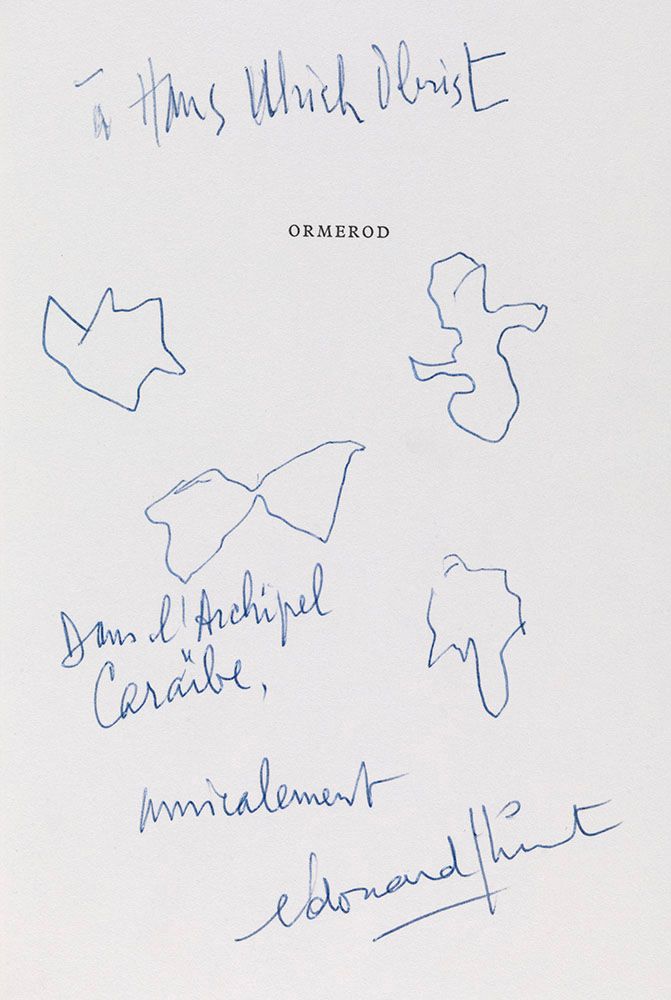 à Hans Ulrich Obrist
ORMEROD
Dans l'Archipel
Caraïbe,
amicalement
edouard Glissant